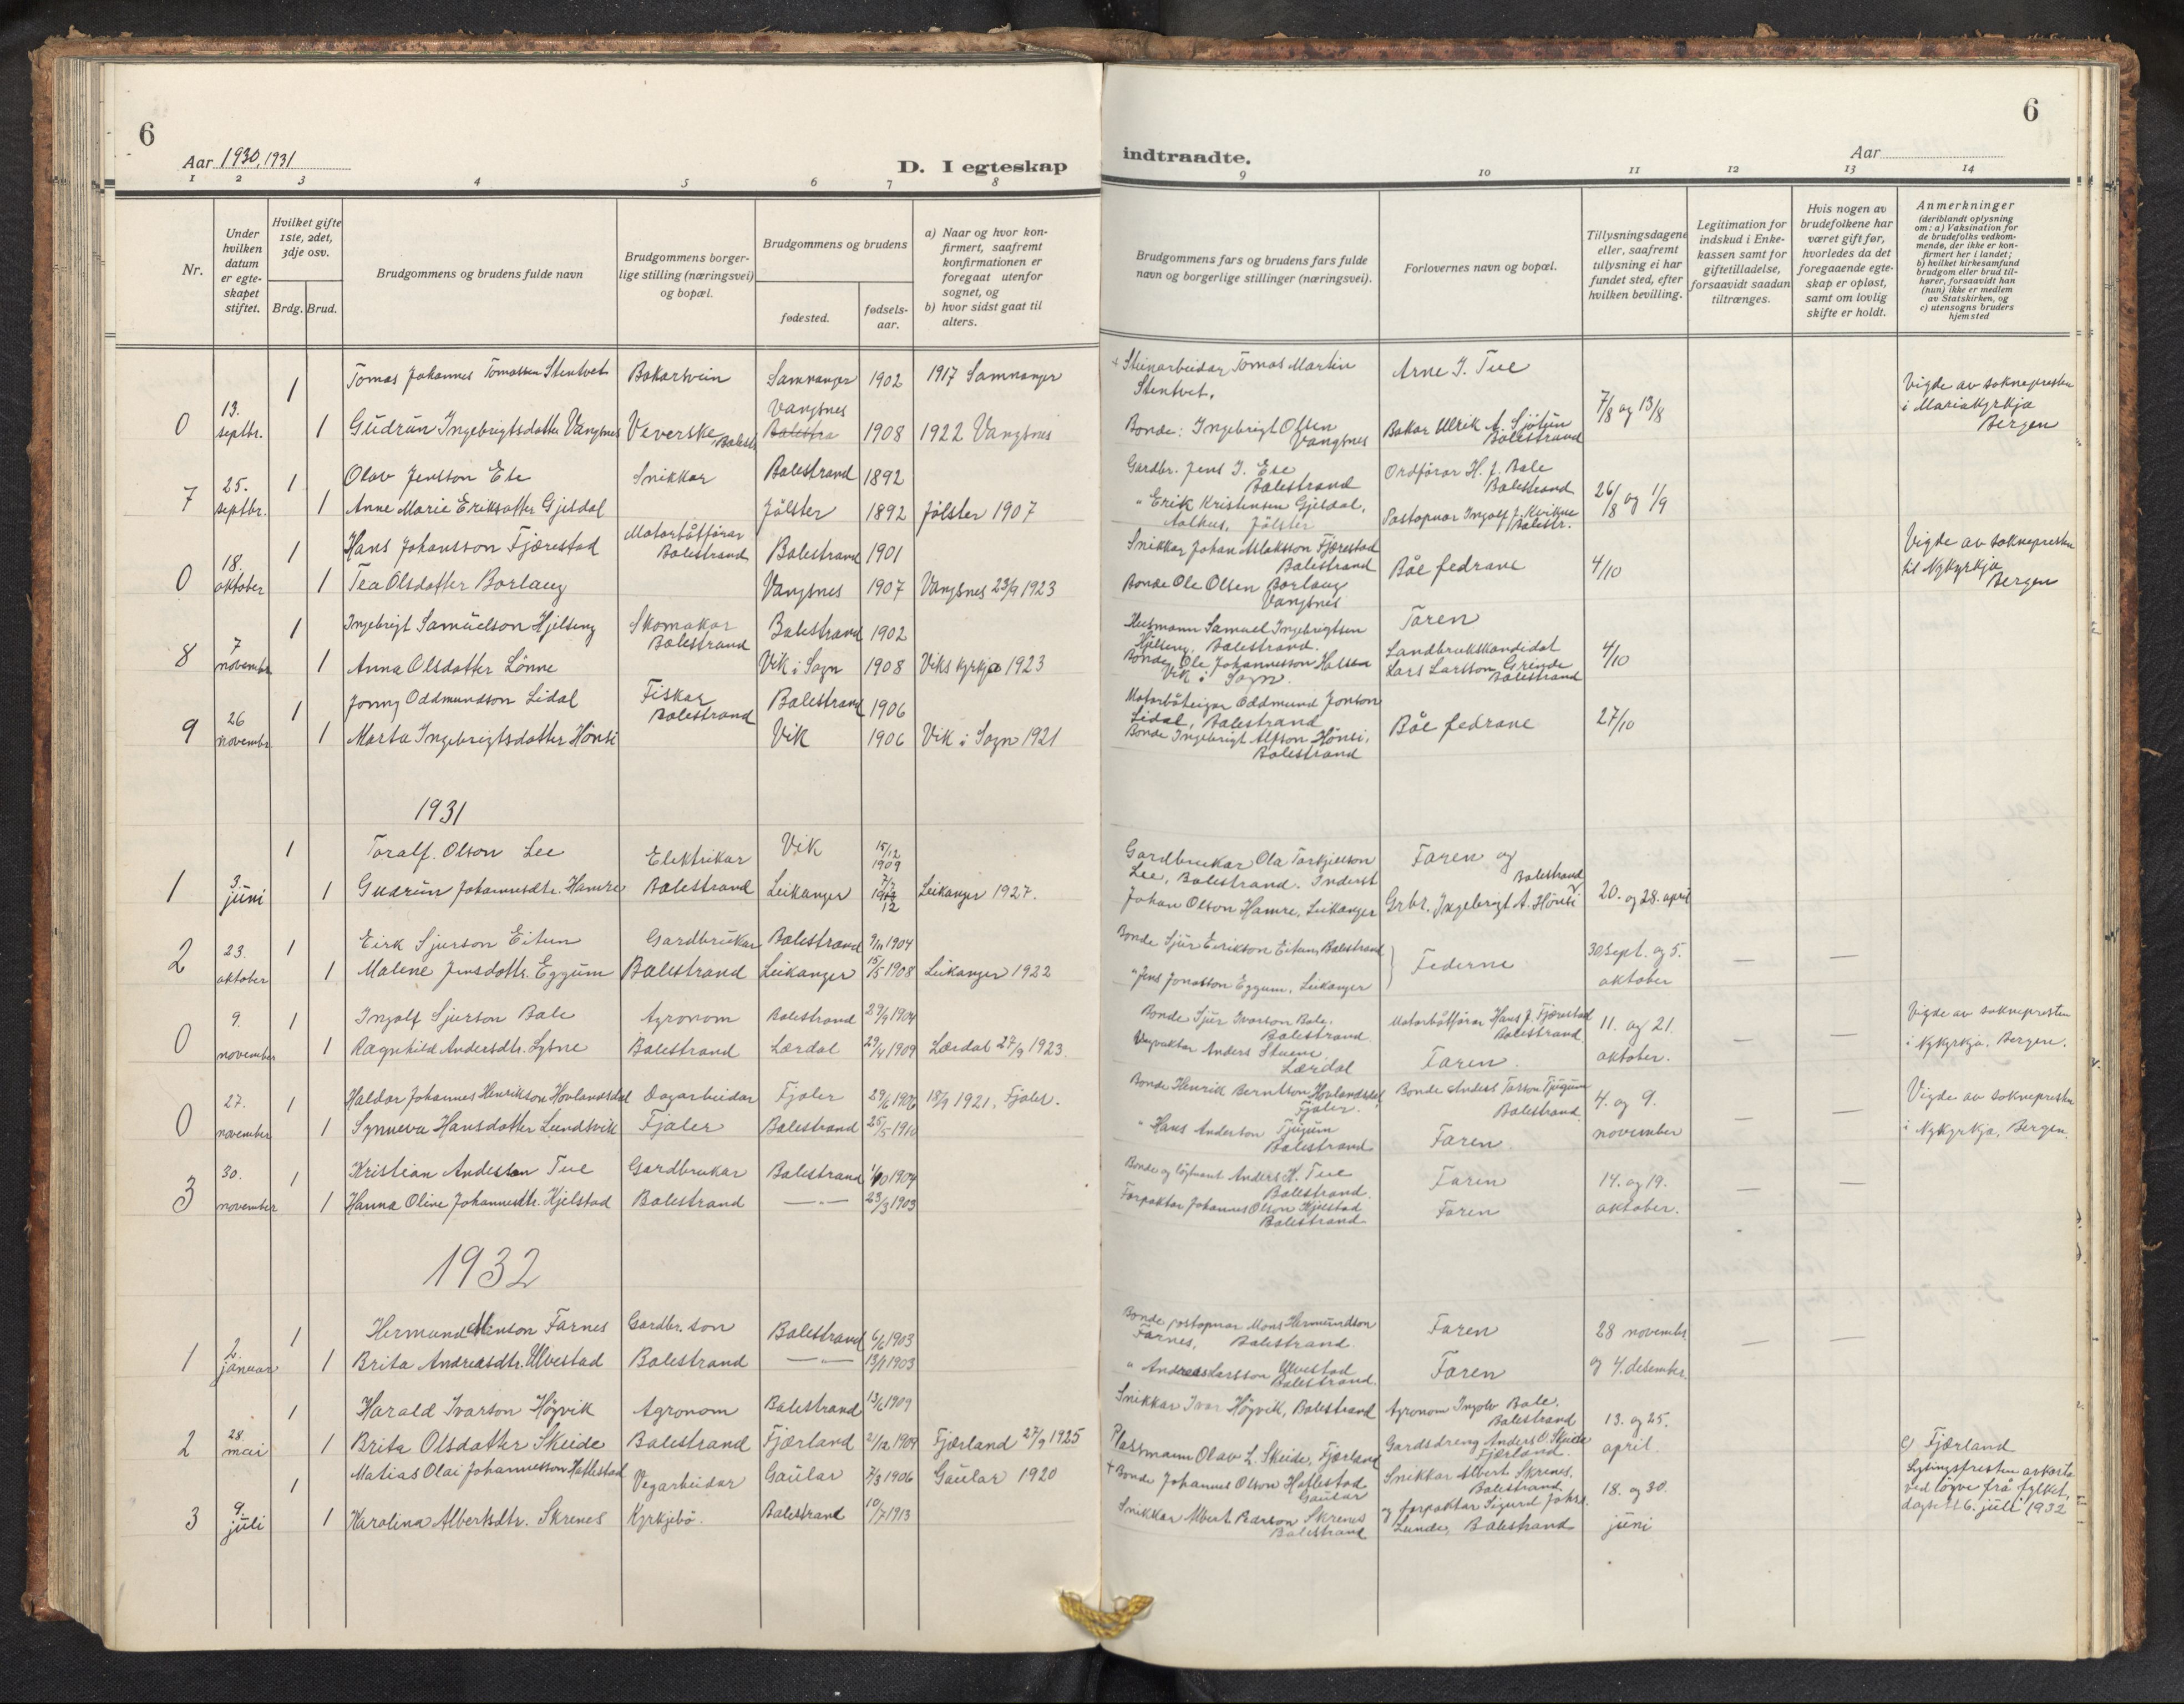 6
Aar 1930, 1931
D. I egteskap
1 2 3 4 5 6 7 8
Nr.
Under hvilken datum er egteskapet stiftet.
Hvilket gifte 1ste, 2det, 3dje osv.
Brdg. Brud.
Brudgommens og brudens fulde navn
Brudgommens borgerlige stilling (næringsvei) og bopæl.
Brudgommens og brudens
fødested.
fødselsaar.
a) Naar og hvor konfirmert, saafremt konfirmationen er foregaat utenfor sognet, og
b) hvor sidst gaat til alters.
1 Tomas Johannes Tomassen Stentvet Bakarsvein Samnanger 1902 1917 Samnanger
Vangsnes
0 13. septbr. 1 Gudrun Ingebrigtsdotter Vangsnes Veverske Balestr. Balestra 1908 1922 Vangsnes
1 Olav Jensson Ese Snikkar Balestrand 1892
7 25. septbr. 1 Anne Marie Eriksdotter Gjesdal Jölster 1892 Jölster 1907
1 Hans Johansson Fjærestad Motorbåtförar Balestrand Balestrand 1901
0 18. oktober 1 Tea Olsdotter Borlaug Vangsnes 1907 Vangsnes 23/9 1923
1 Ingebrigt Samuelson Hjelseng Skomakar Balestrand Balestrand 1902
8 7 november 1 Anna Olsdotter Lönne Vik i Sogn 1908 Viks kyrkja 1923
1 Jonny Oddmundson Lidal Fiskar Balestrand Balestrand 1906
9 26 november 1 Marta Ingebrigtsdotter Hönsi Vik 1906 Vik i Sogn 1921
1931
1 Toralf Olson Lee Elektrikar Vik 15/12 1909
1 3. juni 1 Gudrun Johannesdtr. Hamre Balestrand Leikanger 7/7 1912 Leikanger 1927.
1 Eirk Sjurson Eitun Gardbrukar Balestrand 9/11 1904
2 23. oktober 1 Malene Jensdottr. Eggum Balestrand Leikanger 15/5 1908 Leikanger 1922
1 Ingolf Sjurson Bale Agronom Balestrand 29/9 1904
0 9. november 1 Ragnhild Andersdtr. Lysne Balestrand Lærdal 29/4 1909 Lærdal 27/9 1923.
1 Haldor Johannes Henrikson Hovlandsdal Dagarbeidar Fjaler 29/6 1906 18/9 1921, Fjaler.
0 27. november 1 Synneva Hansdotter Lundsvik Fjaler Balestrand 25/5 1910
1 Kristian Andersson Tue Gardbrukar Balestrand 1/10 1904
3 30. november 1 Hanna Oline Johannesdtr. Kjelstad Balestrand —"— 23/3 1903
1932
1 Hermund Monson Farnes Gardbr. son Balestrand 6/6 1903
1 2. januar 1 Brita Andreasdtr. Ulvestad Balestrand —"— 13/1 1903
1 Harald Ivarson Högvik Agronom Balestrand 13/6 1909
2 28. mai 1 Brita Olsdotter Skeide Balestrand Fjærland 2/12 1909 Fjærland 27/9 1925
1 Matias Olai Johannesson Hatlestad Vegarbeidar Gaular 7/3 1906 Gaular 1920
3 9. juli 1 Karolina Albertsdtr. Skrenes Kyrkjebö. Balestrand 10/7 1913
6
indtraadte.
Aar
9 10 11 12 13 14
Brudgommens fars og brudens fars fulde navn og borgerlige stillinger (næringsvei).
Forlovernes navn og bopæl.
Tillysningsdagene eller, saafremt tillysning ei har fundet sted, efter hvilken bevilling.
Legitimation for indskud i Enkekassen samt for giftetilladelse, forsaavidt saadan tiltrænges.
Hvis nogen av brudefolkene har været gift før, hvorledes da det foregaaende egteskap er opløst, samt om lovlig skifte er holdt.
Anmerkninger (deriblandt oplysning om: a) Vaksination for de brudefolks vedkommende, der ikke er konfirmert her i landet; b) hvilket kirkesamfund brudgom eller brud tilhører, forsaavidt han (hun) ikke er medlem av Statskirken, og c) utensogns bruders hjemsted
Steinarbeidar Tomas Martin Stentvet. Arne J. Tue 7/8 og 13/8 Vigde av soknepresten i Mariakyrkja Bergen
Bonde: Ingebrigt Olsen Vangsnes Bakar Ulrik A. Sjötun Balestrand
Gardbr. Jens J. Ese Balestrand Ordförar H. J. Bale Balestrand 26/8 og 1/9
" Erik Kristensen Gjesdal, Aalhus, Jölster Postopnar Ingolf J. Kvikne Balestr.
Snikkar Johan Aslaksson Fjærestad Balestrand Båe fedrane 4/10 Vigde av soknepresten til Nykyrkja Bergen
Bonde Ole Olsen Borlaug Vangsnes
Husmann Samuel Ingebrigtsen Hjelseng, Balestrand. Faren 4/10
Bonde Ole Johannesson Hassen Vik i Sogn. Landbrukskandidat Lars Larsson Grinde Balestrand
Motorbåteigar Oddmund Jonson Lidal, Balestrand Båe fedrane 27/10
Bonde Ingebrigt Alfson Hönsi, Balestrand
Gardbrukar Ola Torkjelson Lee, Balestrand. Inderst Faren og Balestrand
Johan Olson Hamre, Leikanger Grbr. Ingebrigt A. Hönsi 20. og 28. april
Bonde Sjur Eirikson Eitun, Balestrand Federne 30 sept. og 5. oktober — —
" Jens Jonasson Eggum, Leikanger
Bonde Sjur Ivarson Bale. Balestrand Motorbåtförar Hans J. Fjærestad Balestrand. 11. og 21. oktober. — — Vigde av soknepresten i Nykyrkja, Bergen.
Vegvaktar Anders Lærdal Faren.
Bonde Henrik Berntson Hovlandsdal Fjaler. Bonde Anders Tjugum Balestrand 4. og 9. november — — Vigde av soknepresten i Nykyrkja, Bergen.
" Hans Anderson Tjugum Balestrand Faren
Bonde og löytnant Anders K. Tue Balestrand. Faren 14. og 19. oktober. — —
Forpaktar Johannes Olson Kjelstad Balestrand Faren
Bonde postopnar Mons Hermundson Farnes, Balestrand. Faren 28 november og 4. desember. — —
" Andreas Larsson Ulvestad Balestrand. Faren
Snikkar Ivar Högvik, Balestrand Agronom Ingolv Bale, Balestrand 13. og 25. april.
Plassmann Olav L. Skeide, Fjærland Gardsdreng Anders O. Skeide Fjærland. c) Fjærland
+ Bonde Johannes Olson Hatlestad Gaular Snikkar Albert Skrenes, Balestrand 18. og 30. juni Lysingsfristen avkorta ved löyve frå fylket, dagsett 6. juli 1932
Snikkar Albert Pearson Skrenes Balestrand og forpaktar Sigurd Johs. Lunde, Balestrand